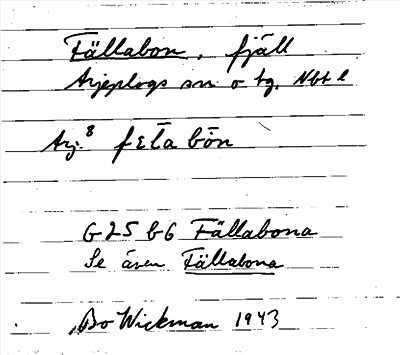 Fällabon, fjäll
Arjeplogs sn o tg. Nbt l
Arj. 8 fɛ̄la bōn
G 25 b G Fällabona
Se även Fällabona
Bo Wickman 1943